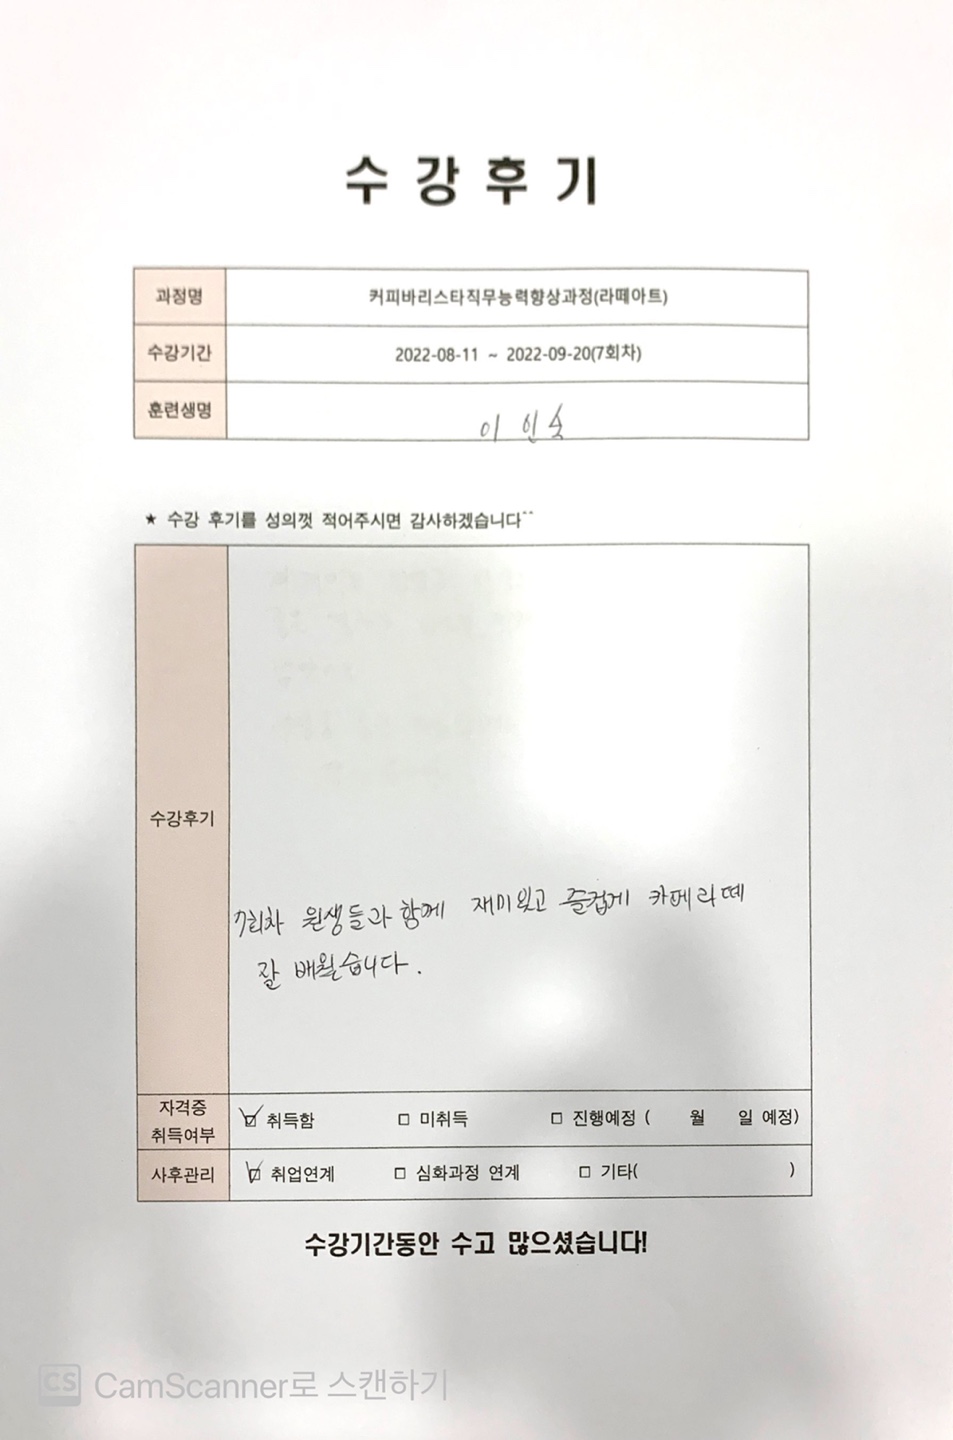 수강후기
과정명 커피바리스타직무능력향상과정(라떼아트)
수강기간 2022-08-11 ~ 2022-09-20(7회차)
훈련생명 이인숙
★ 수강 후기를 성의껏 적어주시면 감사하겠습니다^^
수강후기
7회차 원생들과 함께 재미있고 즐겁게 카페라떼
잘 배웠습니다.
자격증
취득여부
☑ 취득함 □ 미취득 □ 진행예정 ( 월 일 예정)
사후관리 ☑ 취업연계 □ 심화과정 연계 □ 기타( )
수강기간동안 수고 많으셨습니다!
CS CamScanner로 스캔하기